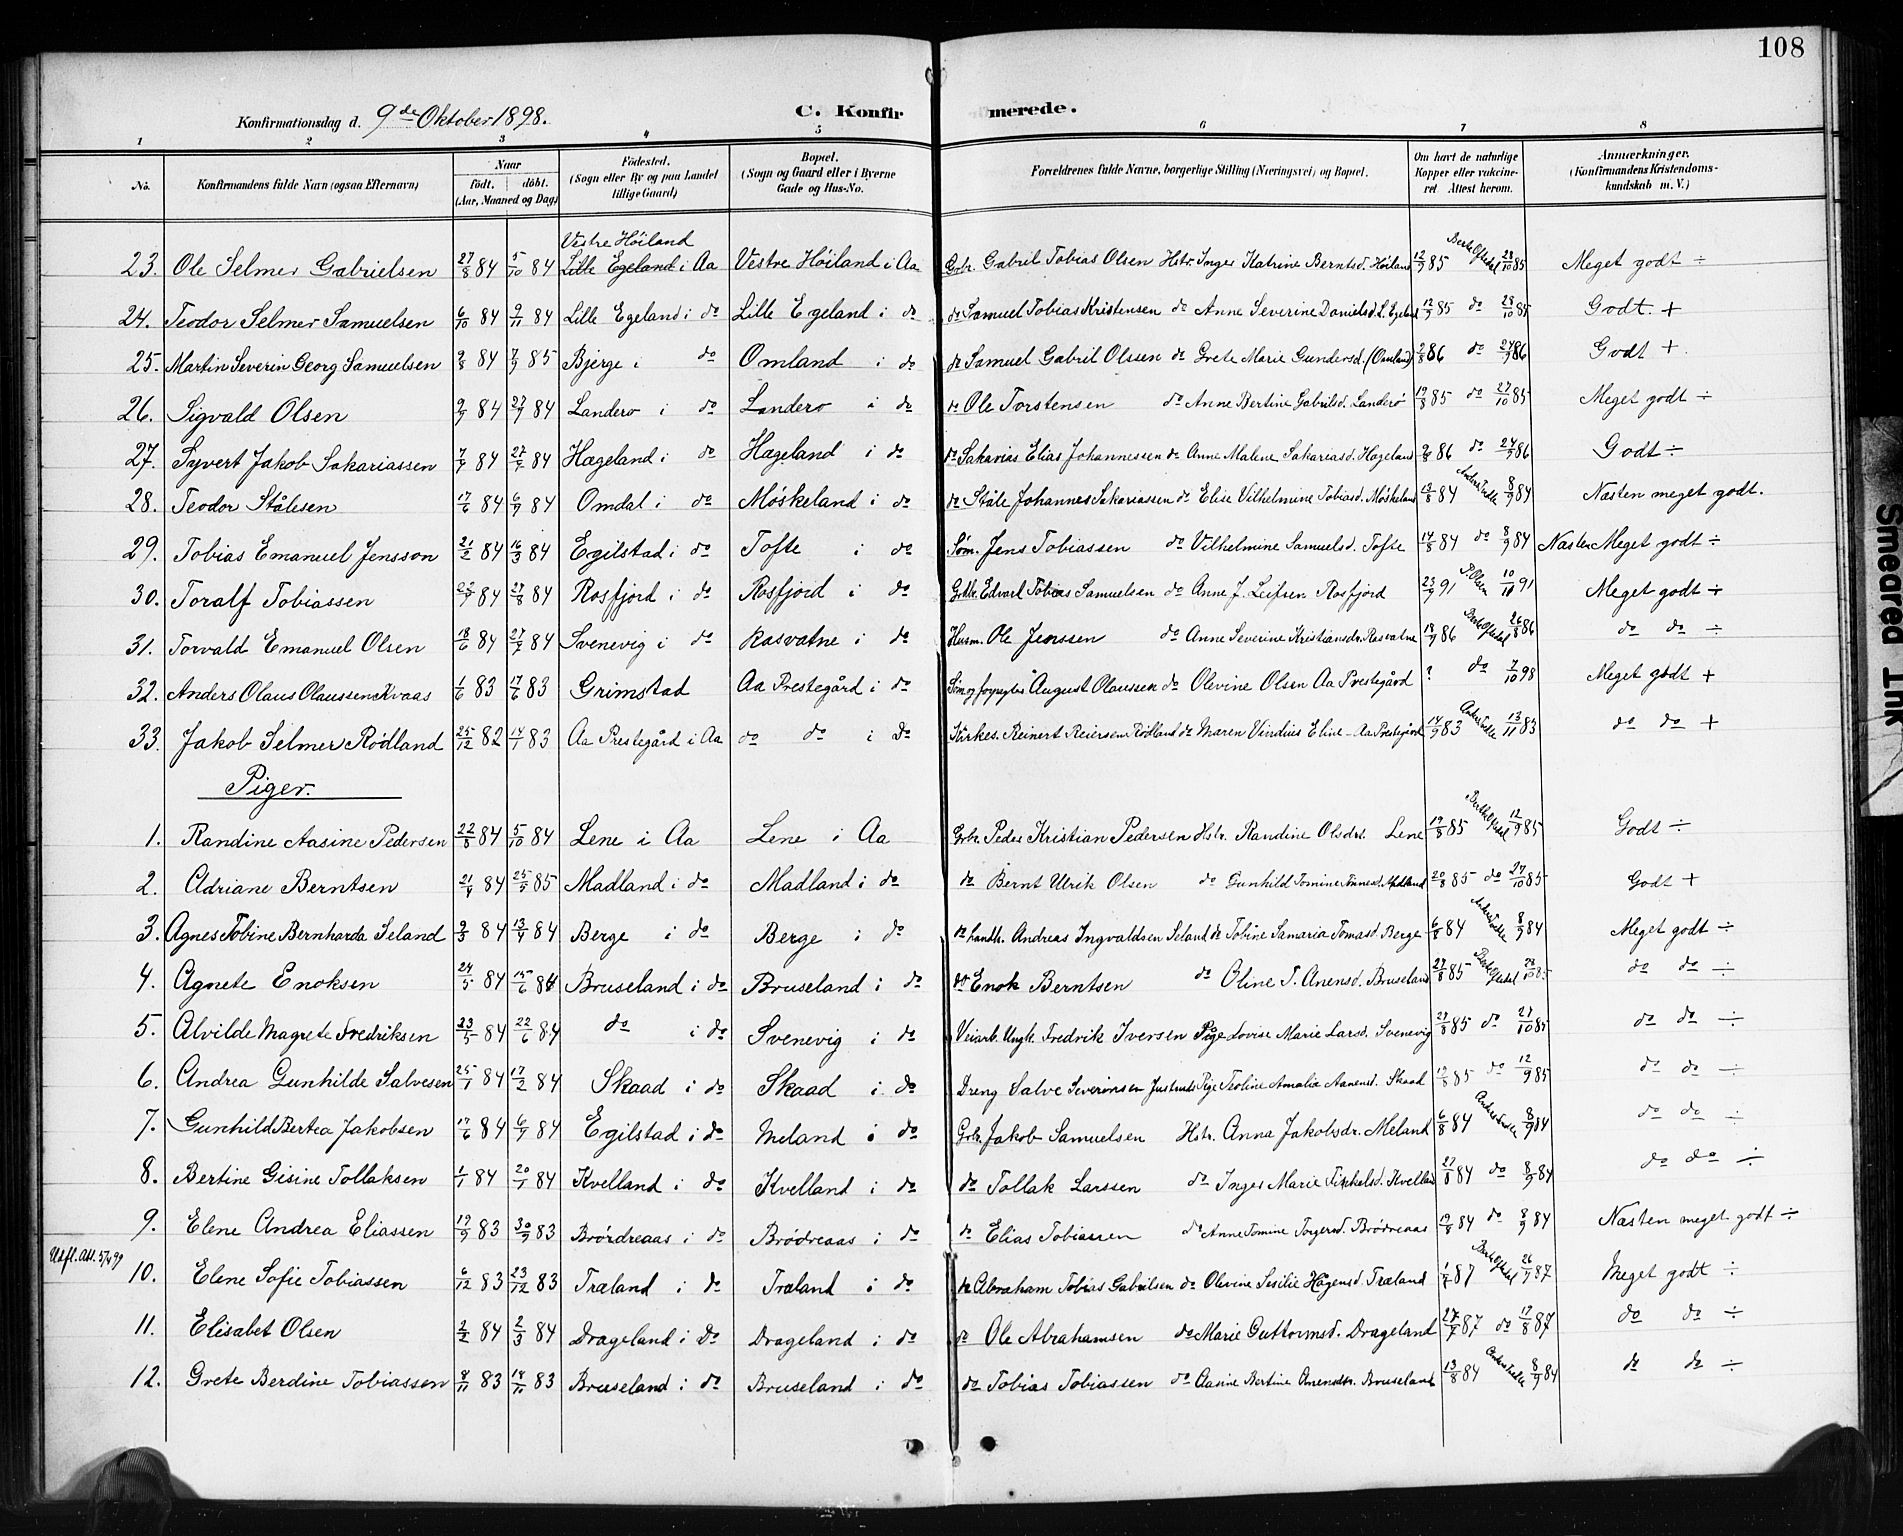 108
Konfirmationsdag d. 9de Oktober 1898. C. Konfirmerede.
1 2 3 4 5 6 7 8
No. Konfirmandens fulde Navn (ogsaa Efternavn) Naar födt. döbt. (Aar, Maaned og Dag) Födested. (Sogn eller By og paa Landet tillige Gaard) Bopæl. (Sogn og Gaard eller i Byerne Gade og Hus-No. Forældrenes fulde Navne, borgerlige Stilling (Næringsvei) og Bopæl. Om havt de naturlige Kopper eller vaccineret Attest herom. Anmærkninger. (Konfirmandens Kristendomskundskab m. V.)
Vestre Höiland
23. Ole Selmer Gabrielsen 27/8 84 5/10 84 Lille Egeland i Aa Vestre Höiland i Aa Gbr. Gabril Tobias Olsen Hstr. Inger Katrine Berntsd. Höiland 12/9 85 28/10 85 Meget godt ÷
24. Teodor Selmer Samuelsen 6/10 84 9/11 84 Lille Egeland i do Lille Egeland i do do Samuel Tobias Kristensen do Anne Severine Danielsd. L. Egeland 12/9 85 do 28/10 85 Godt. +
25. Martin Severin Georg Samuelsen 9/8 84 7/9 85 Bjerge i do Omland i do do Samuel Gabril Olssen do Grete Marie Gundersd. (Omland) 2/8 86 do 24/9 86 Godt +
26. Sigvald Olsen 9/7 84 27/7 84 Landerö i do Landerö i do do Ole Torstensen do Anne Bertine Gabrilsd. Landerö 19/8 85 do 27/10 85 Meget godt ÷
27. Syvert Jakob Sakariassen 7/7 84 27/7 84 Hægeland i do Hægeland i do do Sakarias Elias Johannessen do Anne Malene Sakariasd. Hageland 2/8 86 do 24/9 86 Godt ÷
28. Teodor Stålesen 17/6 84 6/7 84 Omdal i do Möskeland i do do Ståle Johannes Sakariassen do Elise Vilhelmine Tobiasd. Möskeland 13/8 84 8/9 84 Næsten meget godt.
29. Tobias Emanuel Jensson 21/2 84 16/3 84 Egilstad i do Tofte i do Söm. Jens Tobiassen do Vilhelmine Samuelsd. Tofte 14/8 84 do 8/9 84 Næsten Meget godt ÷
30. Toralf Tobiassen 84 27/8 84 Rosfjord i do Rosfjord i do Edvart Tobias Samuelsen do Anne J. Leifsen Rosfjord 23/9 91 P. Olsen 10/10 91 Meget godt ÷
31. Torvald Emanuel Olsen 18/6 84 27/7 84 Svenevig i do Rasvatne i do Husm. Ole Jenssen do Anne Severine Kristiansdr. Rasvatne 18/9 86 26/8 86 do do ÷
32. Anders Olaus Olaussen Kvaas 1/6 83 17/6 83 Grimstad Aa Prestegård i do August Olaussen do Olevine Olsen Aa Prestegård ? do 7/10 98 Meget godt +
33. Jakob Selmer Rödland 25/12 82 14/1 83 Aa Prestegård i Aa do do i do Kirkes. Reinert Reiersen Rödland do Maren Vindius Eline - Aa Prestegård 14/9 83 13/11 83 do do +
Piger.
1. Randine Aasine Pedersen 22/8 84 5/10 84 Lene i Aa Lene i Aa Gbr. Peder Kristian Pedersen Hstr. Randine Olsdr. Lene 19/8 85 12/9 85 Godt ÷
2. Adriane Berntsen 84 25/5 85 Madland i do Madland i do do Bernt Ulrik Olsen do Gunhild Tomine Madland 20/8 85 do 27/10 85 Godt +
3. Agnes Tobine Bernharda Seland 9/3 84 13/4 84 Berge i do Berge i do do Landh. Andreas Ingvaldsen Seland do Tobine Samaria Tomasd. Berge 6/8 84 8/9 84 Meget godt ÷
4. Agnete Enoksen 24/5 84 15/6 84 Bruseland i do Bruseland i do do Enok Berntsen do Oline T. Anensd. Bruseland 27/8 85 85 do do ÷
5. Alvilde Magrete Fredriksen 23/5 84 22/6 84 do i do Svenevig i do Veiarb. Ungk. Fredrik Iversen Pige Lovise Marie Larsd. Svenevig 27/8 85 do 27/10 85 do do ÷
6. Andrea Gunhilde Salvesen 25/1 84 17/2 84 Skaad i do Skaad i do Dreng Salve Severinsen Pige Teoline Amalia Aanensd. Skaad 19/8 85 do 12/9 85 do do ÷
7. Gunhild Bertea Jakobsen 17/6 84 6/7 84 Egilstad i do Meland i do Gbr. Jakob Samuelsen Hstr. Anna Jakobsdr. Meland 6/8 84 8/9 84 do do ÷
8. Bertine Gisine Tollaksen 1/1 84 20/1 84 Kvelland i do Kvelland i do do Tollak Larssen do Inger Marie Kvelland 27/8 84 do 8/9 84 do do ÷
9. Elene Andrea Eliassen 19/9 83 30/9 83 Brördreaas i do Brödreaas i do do Elias Tobiassen do Anne Tomine Torgersd. Brödreaas 19/8 84 do 8/9 84 Næsten meget godt ÷
Udfl. att.
10. Elene Sofie Tobiassen 6/12 83 23/12 83 Træland i do Træland i do do Abraham Tobias Gabrielsen do Olevine Sesilie Hågensd. Træland 1/7 87 26/7 87 Meget godt ÷
11. Elisabet Olsen 2/2 84 2/3 84 Drageland i do Drageland i do do Ole Abrahamsen do Marie Guttormsd. Drageland 27/7 87 do 17/8 87 do do ÷
12. Grete Berdine Tobiassen 8/11 83 18/11 83 Bruseland i do Bruseland i do do Tobias Tobiassen do Aasine Bertine Anensdr. Bruseland 13/8 84 8/9 84 do do ÷
Smeared Ink